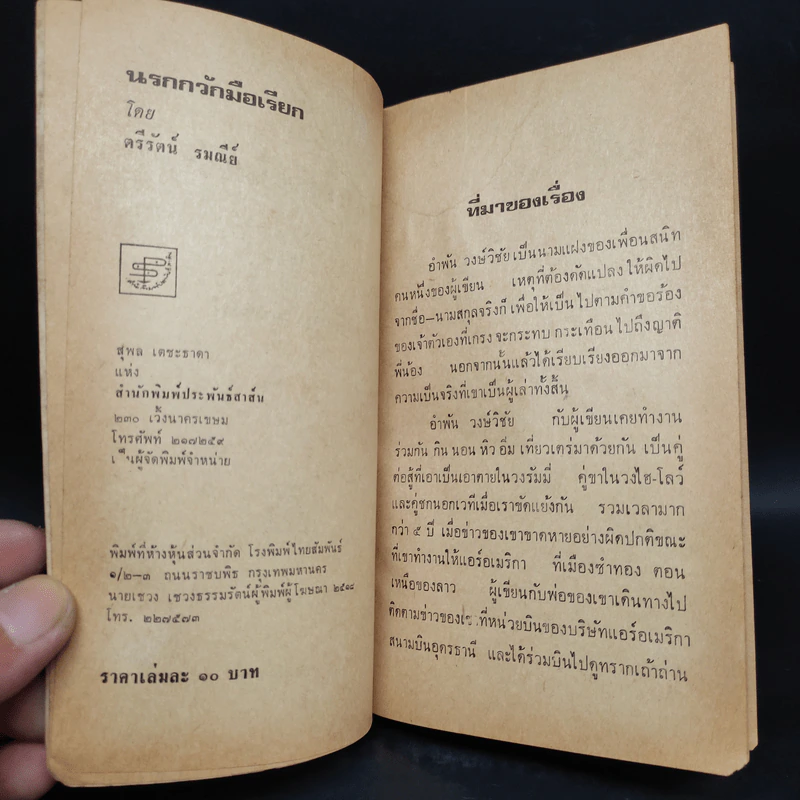 นรกกวักมือเรียก
โดย
ตรีรัตน์ รมณีย์
สุพล เตชะธาดา
แห่ง
สำนักพิมพ์ประพันธ์สาส์น
๒๓๐ เวิ้งนาครเขษม
โทรศัพท์ ๒๑๗๒๕๙
เป็นผู้จัดพิมพ์จำหน่าย
พิมพ์ที่ห้างหุ้นส่วนจำกัด โรงพิมพ์ไทยสัมพันธ์
๑/๒–๓ ถนนราชบพิธ กรุงเทพมหานคร
นายเชวง เชวงธรรมรัตน์ผู้พิมพ์ผู้โฆษณา ๒๕๑๘
โทร. ๒๒๗๕๗๓
ราคาเล่มละ ๑๐ บาท
ที่มาของเรื่อง
อำพัน วงษ์วิชัย เป็นนามแฝงของเพื่อนสนิท
คนหนึ่งของผู้เขียน เหตุที่ต้องดัดแปลง ให้ผิดไป
จากชื่อ–นามสกุลจริงก็ เพื่อให้เป็น ไปตามคำขอร้อง
ของเจ้าตัวเองที่เกรง จะกระทบ กระเทือน ไปถึงญาติ
พี่น้อง นอกจากนั้นแล้วได้เรียบเรียงออกมาจาก
ความเป็นจริงที่เขาเป็นผู้เล่าทั้งสิ้น
อำพัน วงษ์วิชัย กับผู้เขียนเคยทำงาน
ร่วมกัน กิน นอน หิว อิ่ม เที่ยวเตร่มาด้วยกัน เป็นคู่
ต่อสู้ที่เอาเป็นเอาตายในวงรัมมี่ คู่ขาในวงไฮ-โลว์
และคู่ชกนอกเวทีเมื่อเราขัดแย้งกัน รวมเวลามาก
กว่า ๕ ปี เมื่อข่าวของเขาขาดหายอย่างผิดปกติขณะ
ที่เขาทำงานให้แอร์อเมริกา ที่เมืองซำทอง ตอน
เหนือของลาว ผู้เขียนกับพ่อของเขาเดินทางไป
ติดตามข่าวของเขาที่หน่วยบินของบริษัทแอร์อเมริกา
สนามบินอุดรธานี และได้ร่วมบินไปดูซากเถ้าถ่าน